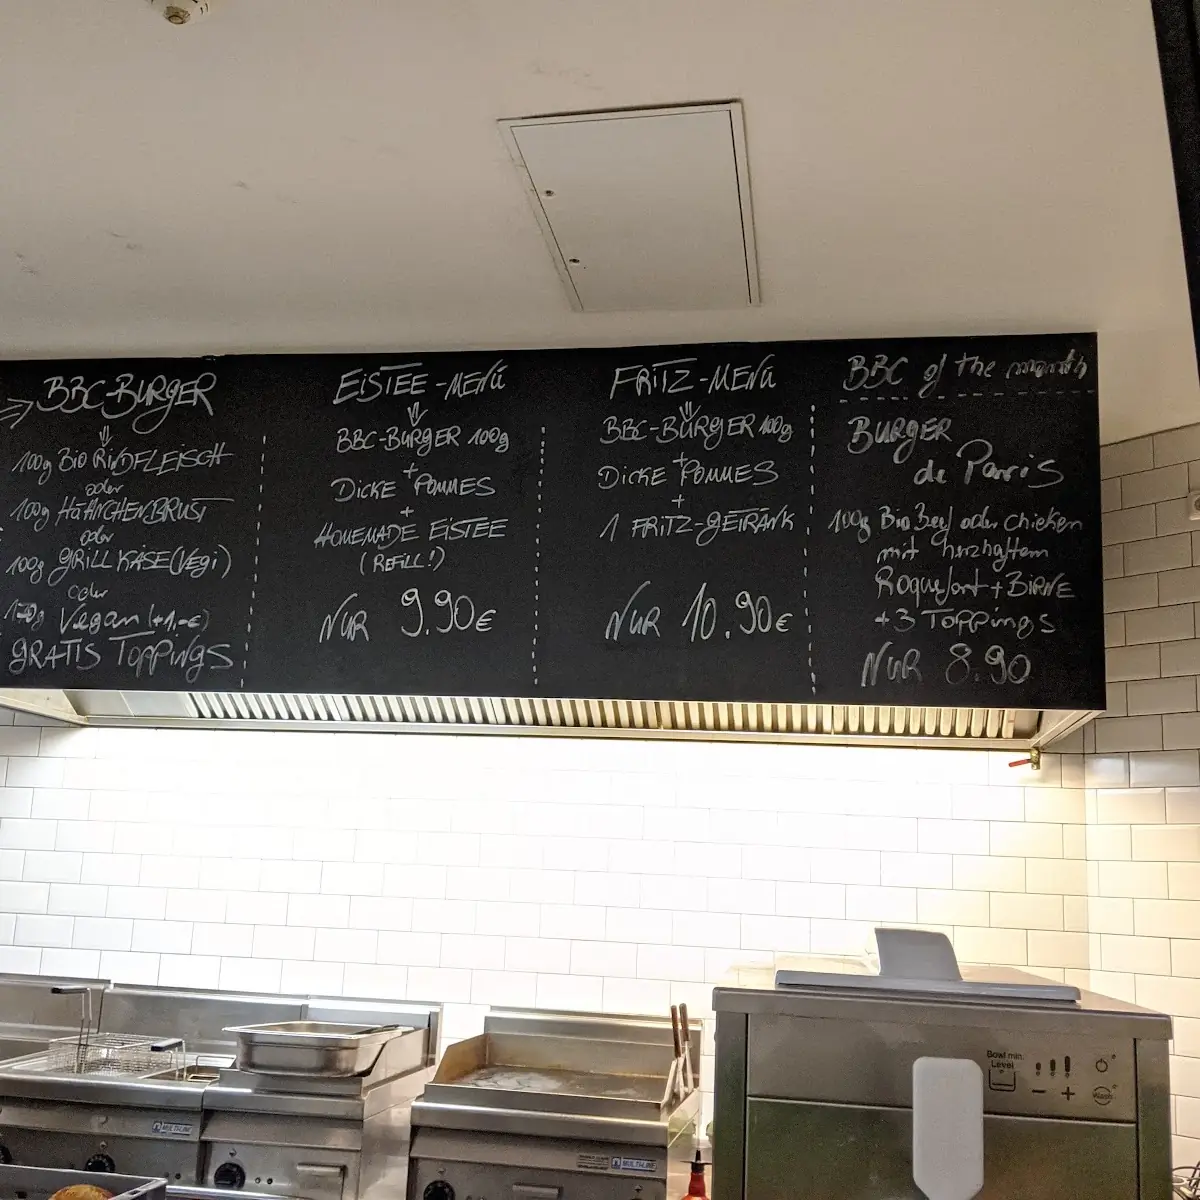 BBC-BURGER
100g BIO RINDFLEISCH
oder
100g HÄHNCHENBRUST
oder
100g GRILL KÄSE (VEGI)
oder
Vegan (+1.-€)
GRATIS TOPPINGS
EISTEE-MENÜ
BBC-BURGER 100g
+
DICKE POMMES
+
HOMEMADE EISTEE
(REFILL!)
NUR 9.90€
FRITZ-MENÜ
BBC-BURGER 100g
+
DICKE POMMES
+
1 FRITZ-GETRÄNK
NUR 10.90€
BBC of the month
BURGER
de Parris
100g Bio Beef oder chicken
mit herzhaftem
Roquefort + BIRNE
+3 TOPPINGS
NUR 8.90
Bowl min.
Level
Wash
MULTI-LINE
MULTI-LINE